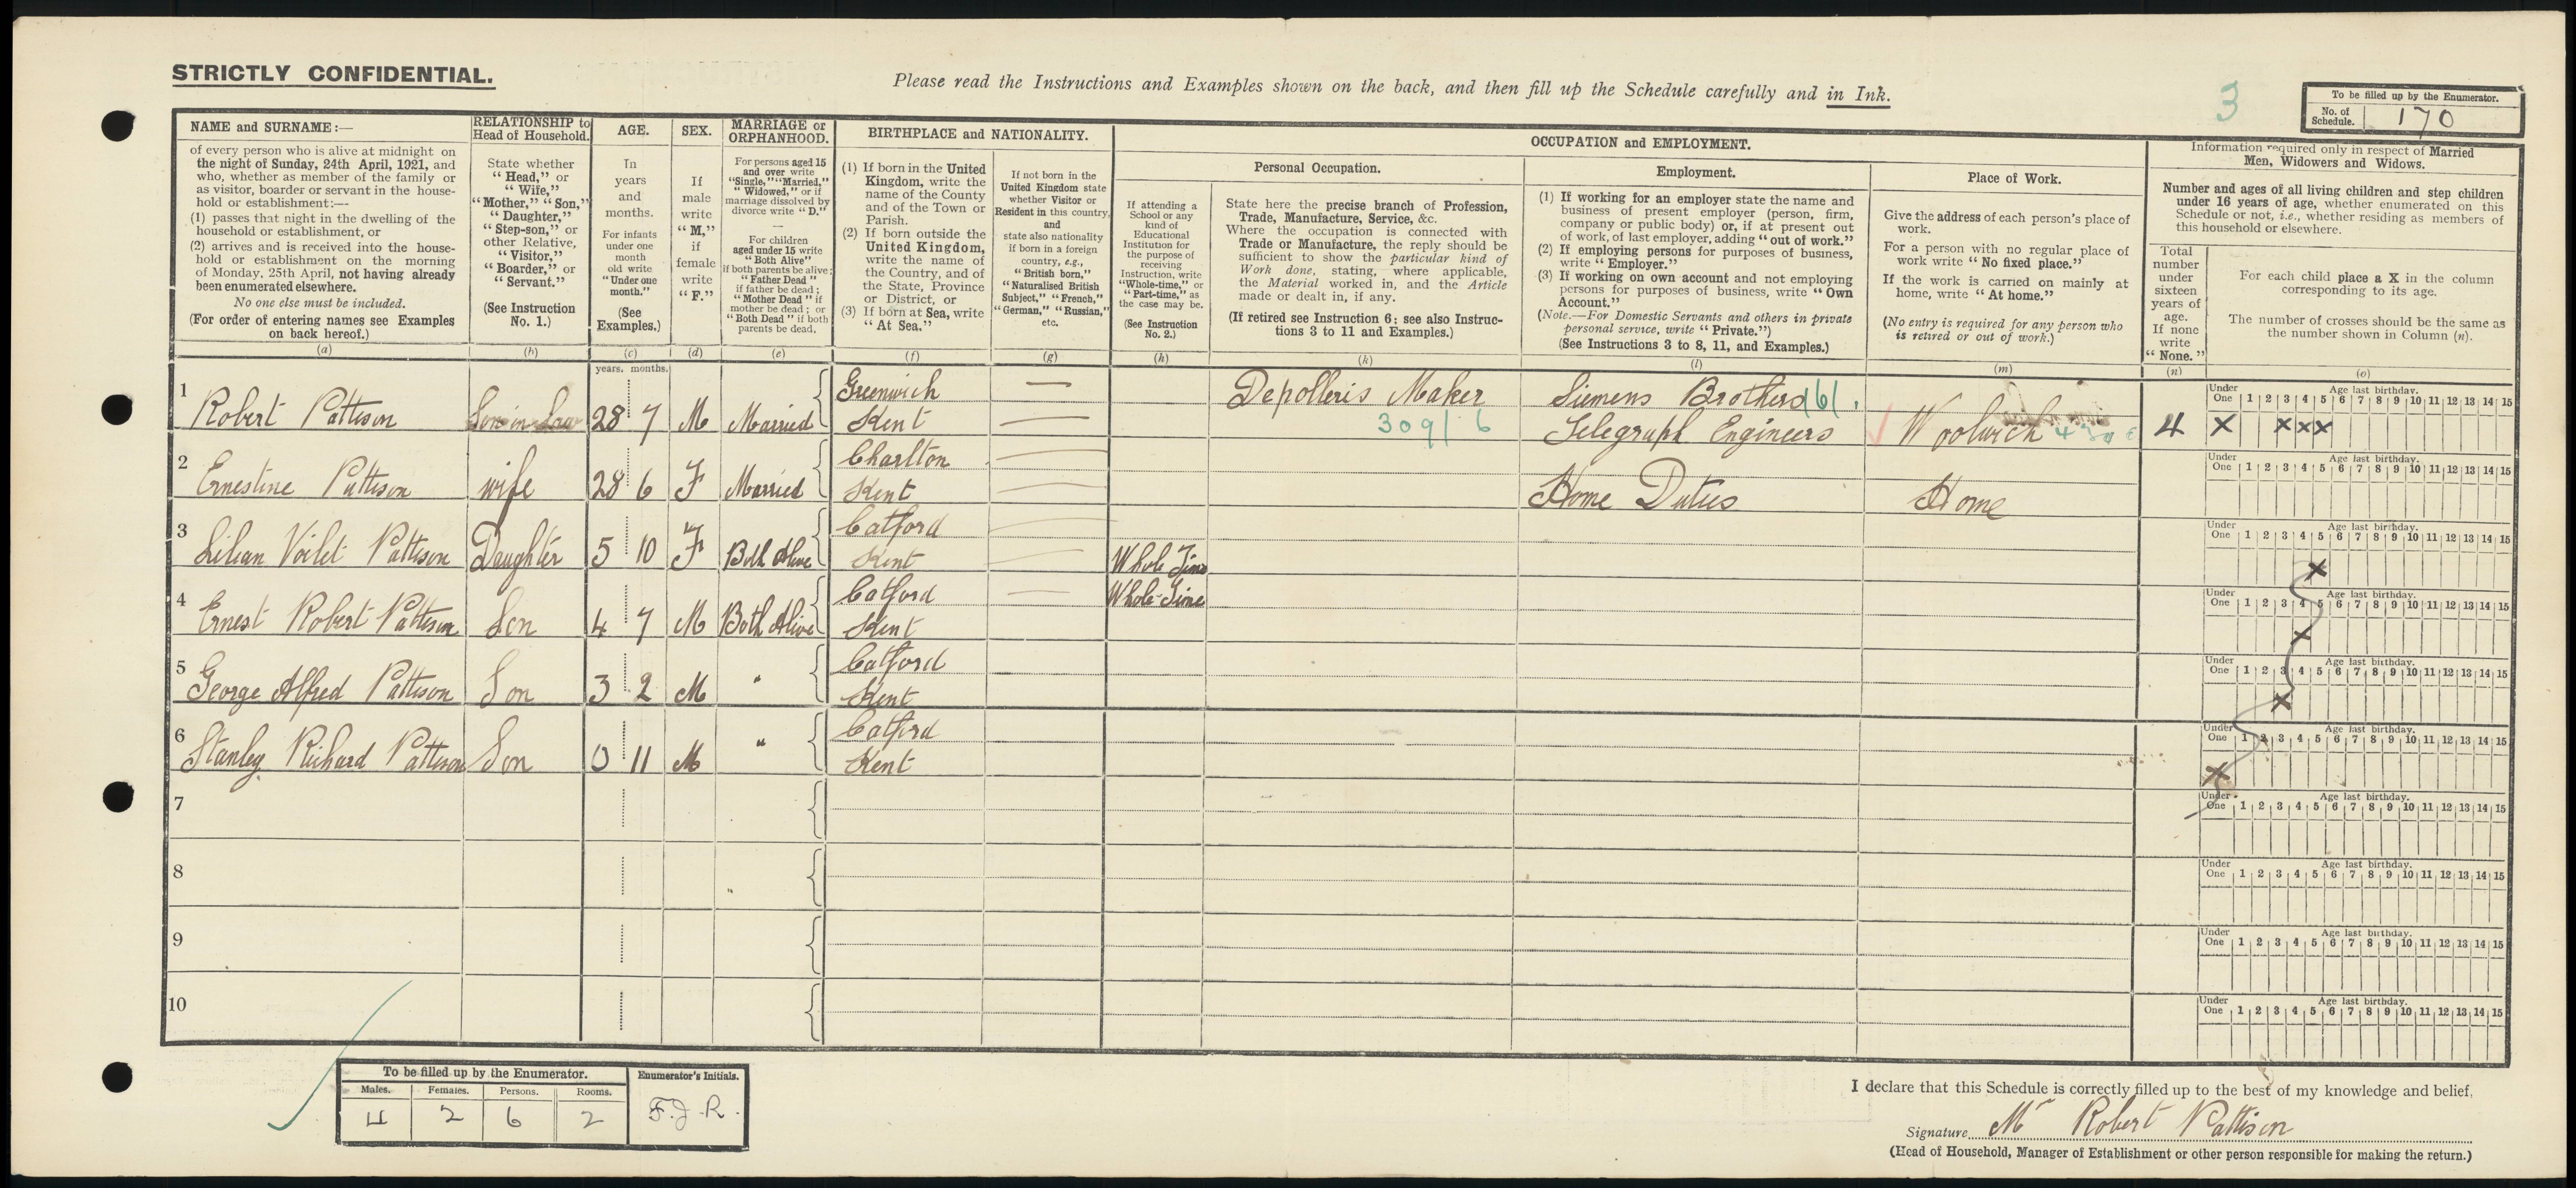 STRICTLY CONFIDENTIAL.
Please read the Instructions and Examples shown on the back, and then fill up the Schedule carefully and in Ink.
3
To be filled up by the Enumerator.
No. of Schedule. 170
NAME and SURNAME:—
of every person who is alive at midnight on
the night of Sunday, 24th April, 1921, and
who, whether as member of the family or
as visitor, boarder or servant in the house-
hold or establishment:—
(1) passes that night in the dwelling of the
household or establishment, or
(2) arrives and is received into the house-
hold or establishment on the morning
of Monday, 25th April, not having already
been enumerated elsewhere.
No one else must be included.
(For order of entering names see Examples
on back hereof.)
(a)
RELATIONSHIP to
Head of Household.
State whether
"Head," or
"Wife,"
"Mother," "Son,"
"Daughter,"
"Step-son," or
other Relative,
"Visitor,"
"Boarder," or
"Servant."
(See Instruction
No. 1.)
(b)
AGE.
In
years
and
months.
For infants
under one
month
old write
"Under one
month."
(See
Examples.)
(c)
years. months.
SEX.
If
male
write
"M,"
if
female
write
"F."
(d)
MARRIAGE or
ORPHANHOOD.
For persons aged 15
and over write
"Single," "Married,"
"Widowed," or if
marriage dissolved by
divorce write "D."
—
For children
aged under 15 write
"Both Alive"
if both parents be alive;
"Father Dead"
if father be dead;
"Mother Dead" if
mother be dead; or
"Both Dead" if both
parents be dead.
(e)
BIRTHPLACE and NATIONALITY.
(1) If born in the United
Kingdom, write the
name of the County
and of the Town or
Parish.
(2) If born outside the
United Kingdom,
write the name of
the Country, and of
the State, Province
or District, or
(3) If born at Sea, write
"At Sea."
(f)
If not born in the
United Kingdom state
whether Visitor or
Resident in this country,
and
state also nationality
if born in a foreign
country, e.g.,
"British born,"
"Naturalised British
Subject," "French,"
"German," "Russian,"
etc.
(g)
OCCUPATION and EMPLOYMENT.
If attending a
School or any
kind of
Educational
Institution for
the purpose of
receiving
Instruction, write
"Whole-time," or
"Part-time," as
the case may be.
(See Instruction
No. 2.)
(h)
Personal Occupation.
State here the precise branch of Profession,
Trade, Manufacture, Service, &c.
Where the occupation is connected with
Trade or Manufacture, the reply should be
sufficient to show the particular kind of
Work done, stating, where applicable,
the Material worked in, and the Article
made or dealt in, if any.
(If retired see Instruction 6; see also Instruc-
tions 3 to 11 and Examples.)
(k)
Employment.
(1) If working for an employer state the name and
business of present employer (person, firm,
company or public body) or, if at present out
of work, of last employer, adding "out of work."
(2) If employing persons for purposes of business,
write "Employer."
(3) If working on own account and not employing
persons for purposes of business, write "Own
Account."
(Note.—For Domestic Servants and others in private
personal service, write "Private.")
(See Instructions 3 to 8, 11, and Examples.)
(l)
Place of Work.
Give the address of each person's place of
work.
For a person with no regular place of
work write "No fixed place."
If the work is carried on mainly at
home, write "At home."
(No entry is required for any person who
is retired or out of work.)
(m)
Information required only in respect of Married
Men, Widowers and Widows.
Number and ages of all living children and step children
under 16 years of age, whether enumerated on this
Schedule or not, i.e., whether residing as members of
this household or elsewhere.
Total
number
under
sixteen
years of
age.
If none
write
"None."
(n)
For each child place a X in the column
corresponding to its age.
The number of crosses should be the same as
the number shown in Column (n).
(o)
1 Robert Pattison Son in Law 28 7 M Married Greenwich Kent — — Depolleris Maker 309/6 Siemens Brothers 161. Telegraph Engineers Woolwich 4 X X X X
Under One Age last birthday. 1 2 3 4 5 6 7 8 9 10 11 12 13 14 15
2 Ernestine Pattison wife 28 6 F Married Charlton Kent — — Home Duties Home
Under One Age last birthday. 1 2 3 4 5 6 7 8 9 10 11 12 13 14 15
3 Lilian Voilet Pattison Daughter 5 10 F Both Alive Catford Kent — — Whole Time
Under One Age last birthday. 1 2 3 4 5 6 7 8 9 10 11 12 13 14 15 X
4 Ernest Robert Pattison Son 4 7 M Both Alive Catford Kent — Whole-Time
Under One Age last birthday. 1 2 3 4 5 6 7 8 9 10 11 12 13 14 15 X
5 George Alfred Pattison Son 3 2 M " Catford Kent
Under One Age last birthday. 1 2 3 4 5 6 7 8 9 10 11 12 13 14 15 X
6 Stanley Richard Pattison Son 0 11 M " Catford Kent
Under One Age last birthday. 1 2 3 4 5 6 7 8 9 10 11 12 13 14 15 X
7
Under One Age last birthday. 1 2 3 4 5 6 7 8 9 10 11 12 13 14 15
8
Under One Age last birthday. 1 2 3 4 5 6 7 8 9 10 11 12 13 14 15
9
Under One Age last birthday. 1 2 3 4 5 6 7 8 9 10 11 12 13 14 15
10
Under One Age last birthday. 1 2 3 4 5 6 7 8 9 10 11 12 13 14 15
To be filled up by the Enumerator.
Males. Females. Persons. Rooms.
4 2 6 2
Enumerator's Initials.
F.J.R.
I declare that this Schedule is correctly filled up to the best of my knowledge and belief.
Signature Mr Robert Pattison
(Head of Household, Manager of Establishment or other person responsible for making the return.)